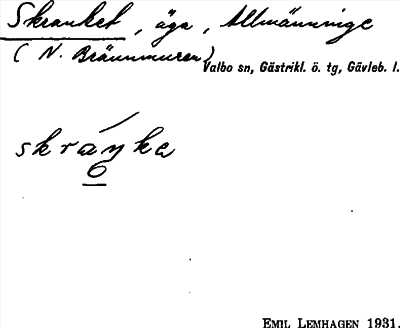 Skranket, äga, Allmänninge
(N. Brännmuren)
Valbo sn, Gästrikl. ö. tg, Gävleb. l.
skráŋke
6
EMIL LEMHAGEN 1931.